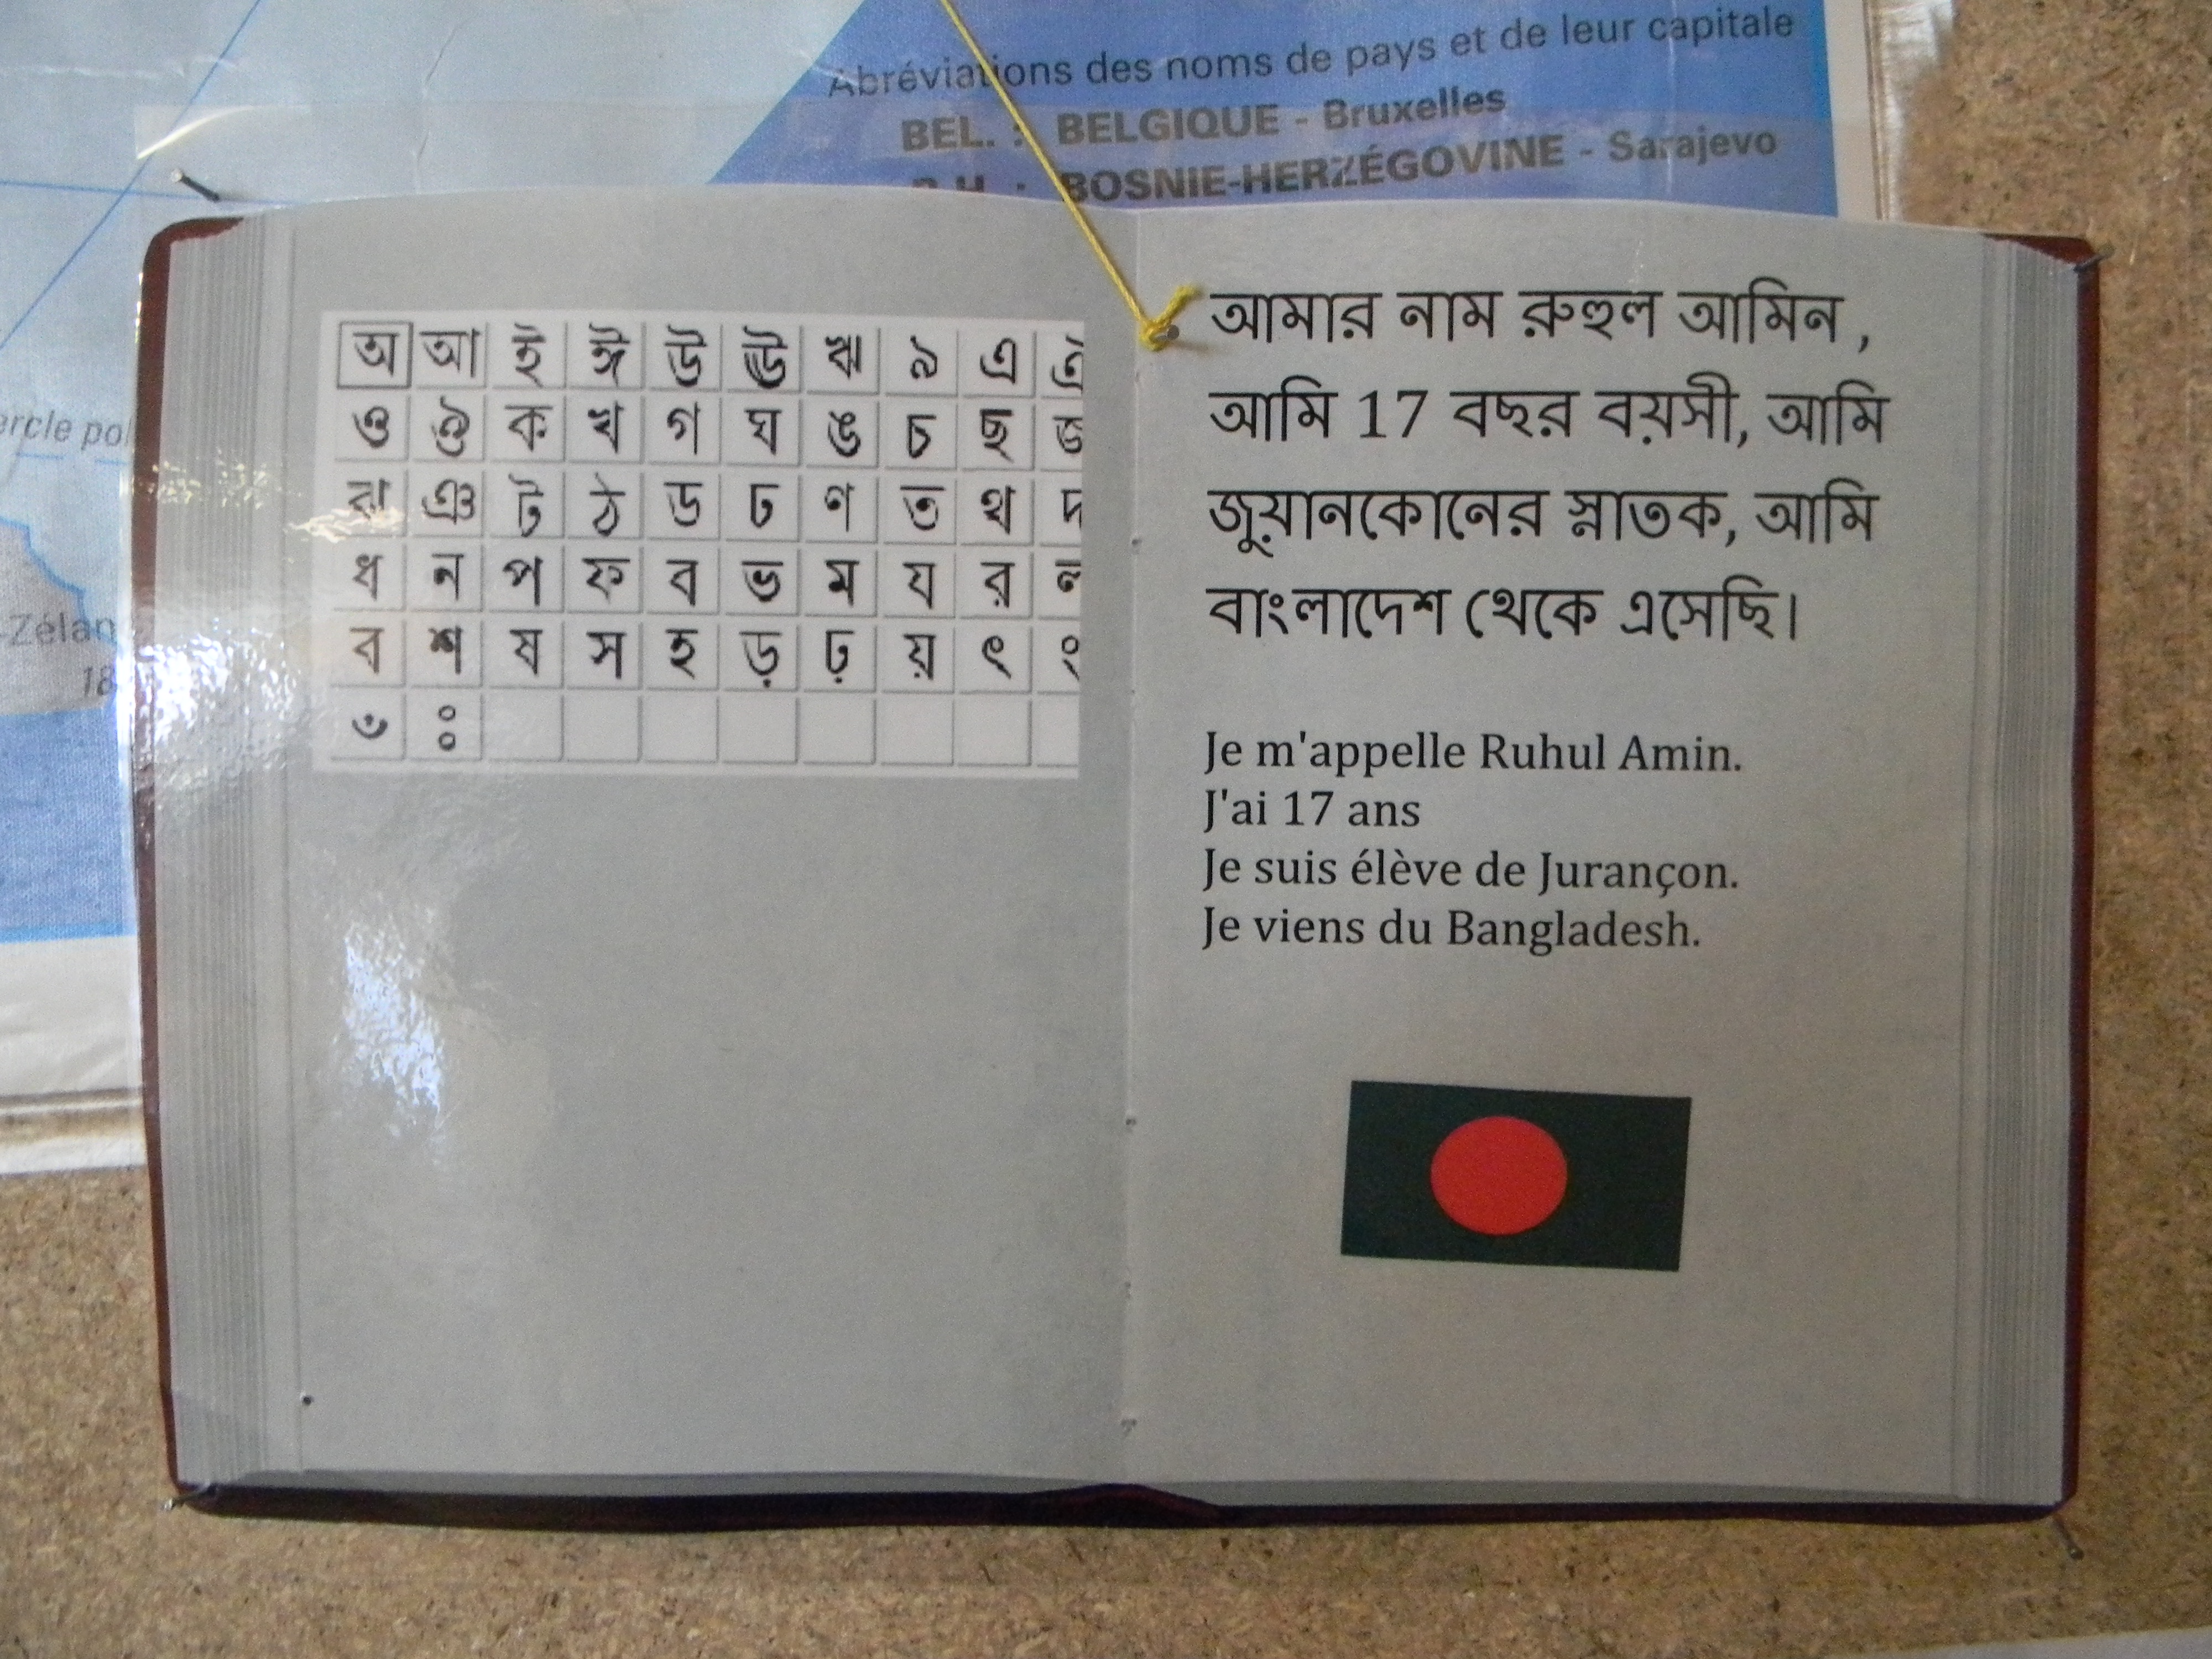 Abréviations des noms de pays et de leur capitale
BEL. : BELGIQUE - Bruxelles
BOSNIE-HERZÉGOVINE - Sarajevo
18
অ আ ই ঈ উ ঊ ঋ ঌ এ
ও ঔ ক খ গ ঘ ঙ চ ছ
ঝ ঞ ট ঠ ড ঢ ণ ত থ
ধ ন প ফ ব ভ ম য র
ব শ ষ স হ ড় ঢ় য় ৎ ং
ঁ ঃ
আমার নাম রুহুল আমিন ,
আমি 17 বছর বয়সী, আমি
জুয়ানকোনের স্নাতক, আমি
বাংলাদেশ থেকে এসেছি।
Je m'appelle Ruhul Amin.
J'ai 17 ans
Je suis élève de Jurançon.
Je viens du Bangladesh.